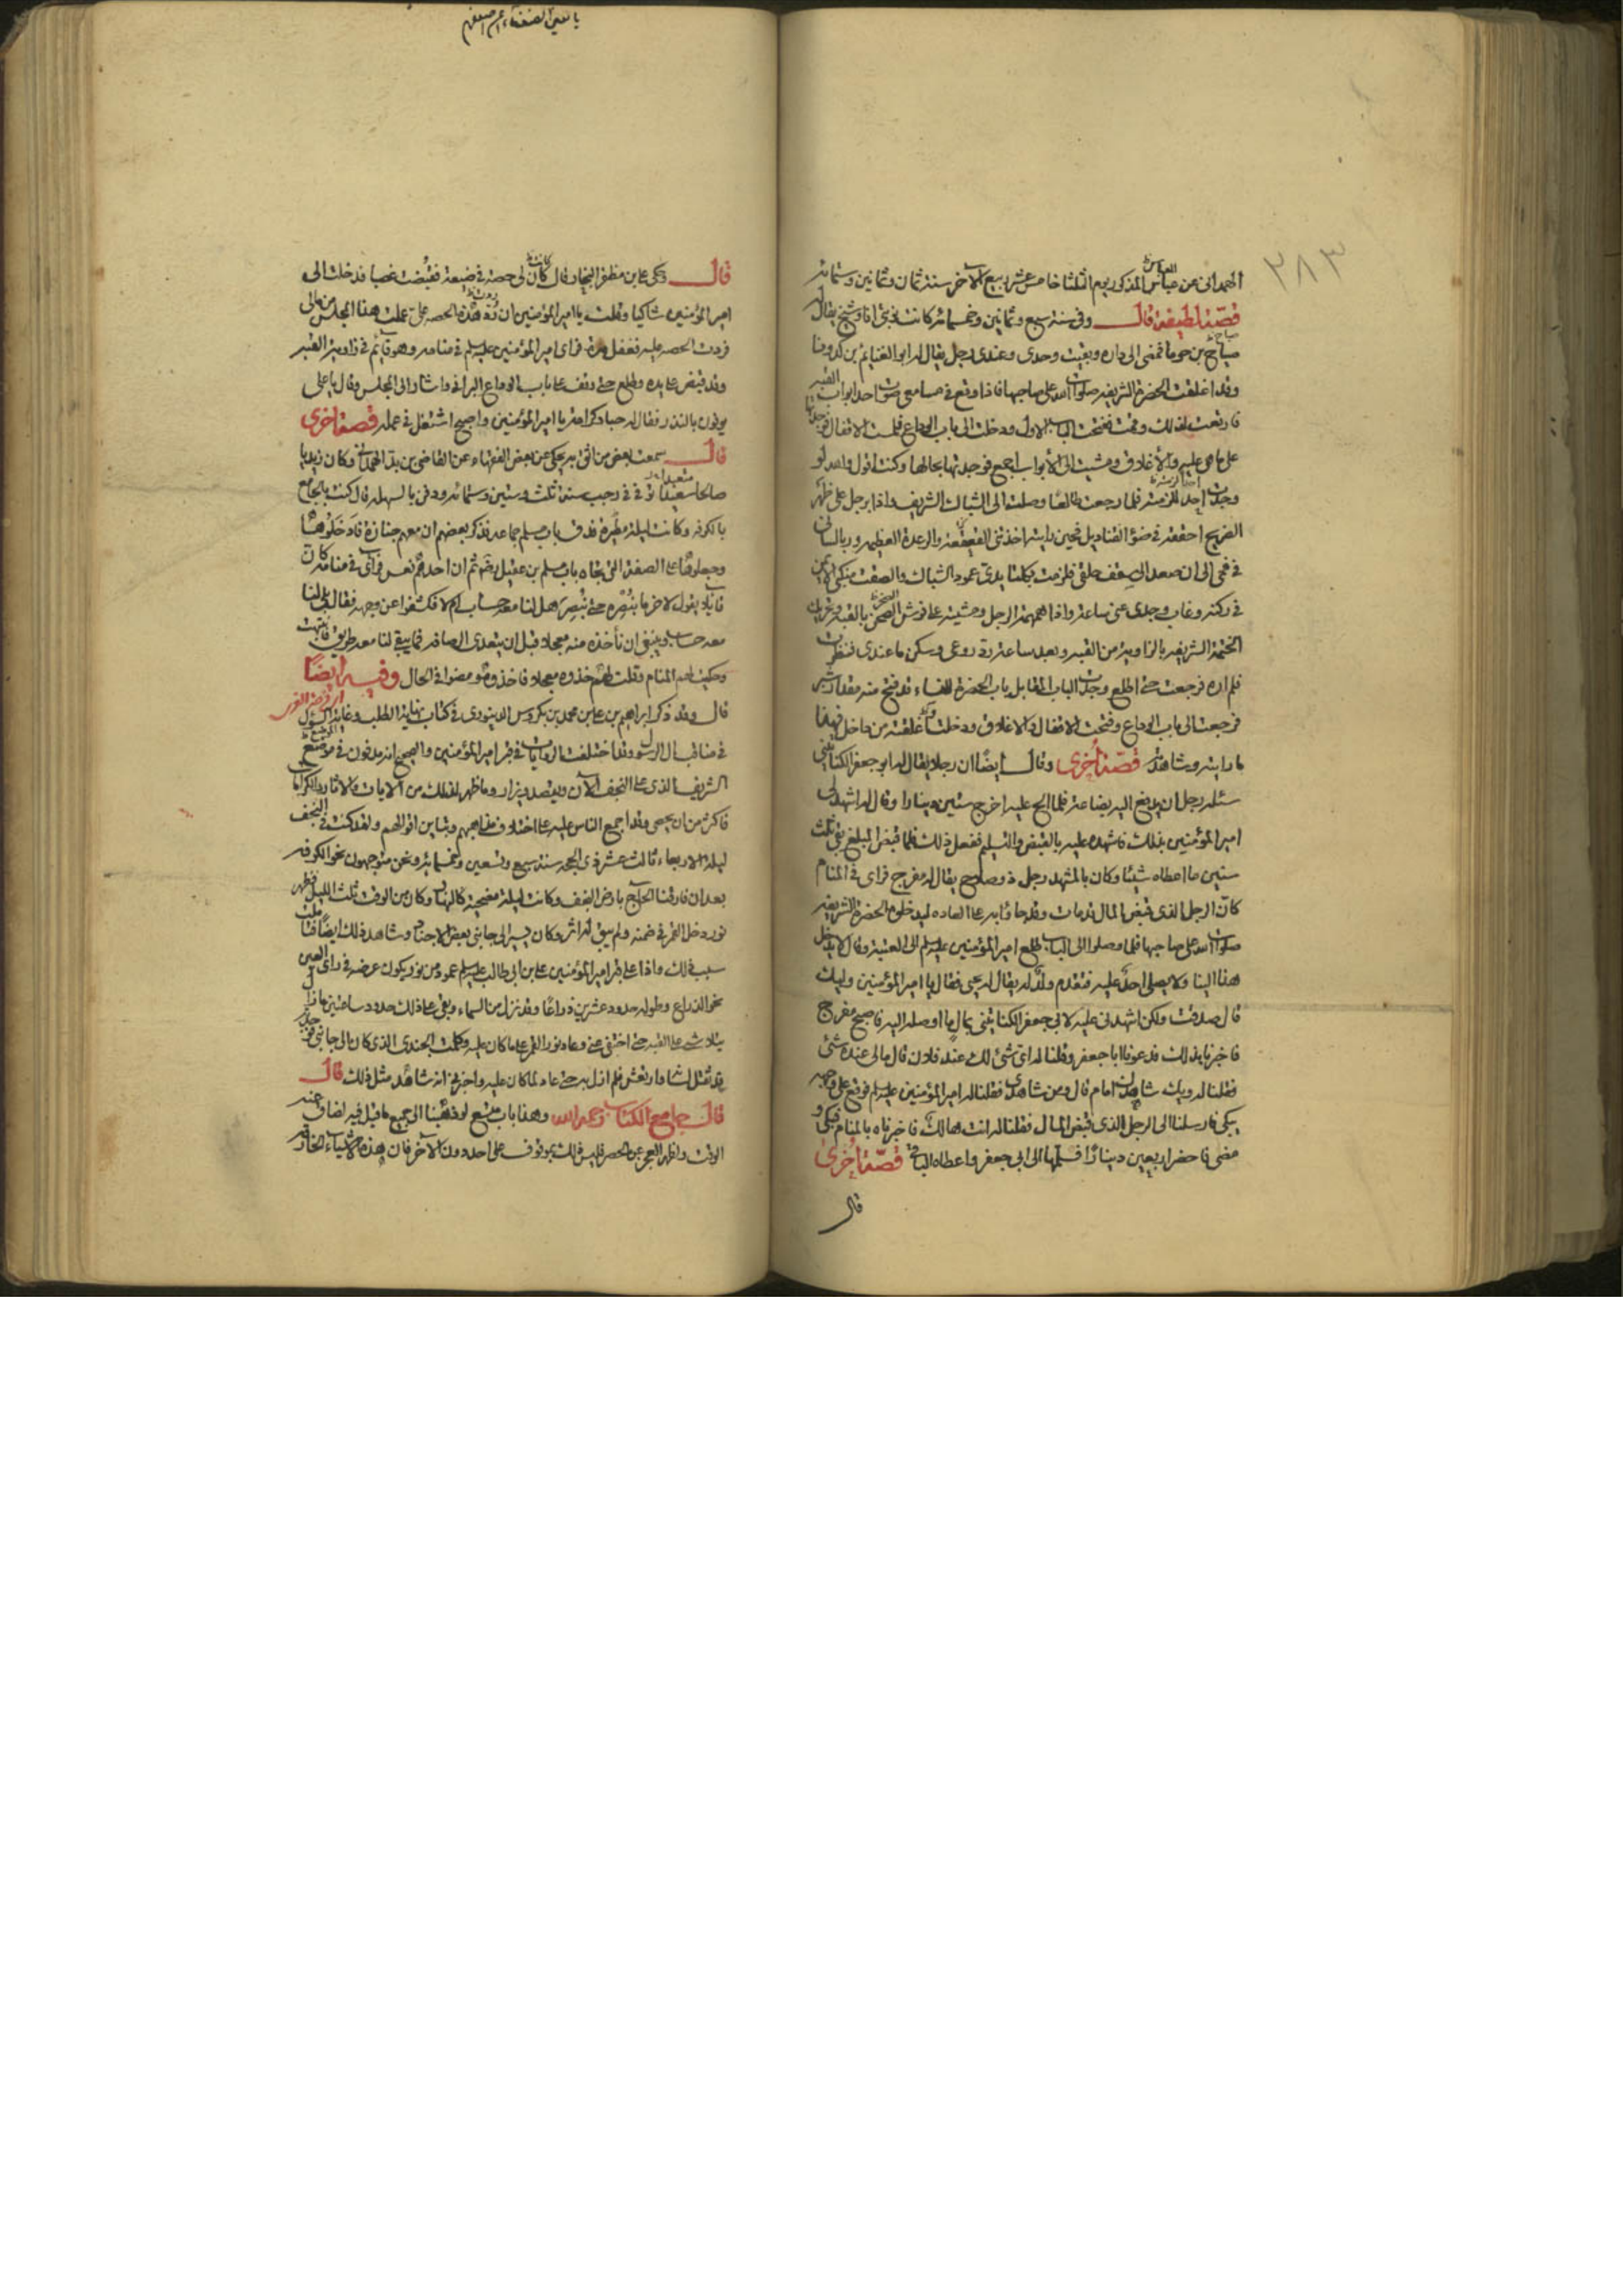 ٣٨٣
الهمداني عن عباس المذكور يوم الثلثا خامس عشر ربيع الآخر سنة ثمان وثمانين وستمائة
قصة لطيفة قال وفي سنة سبع وثمانين وخمسمائة كانت نوبتي انا وشيخ يقال له
صباح بن حوبا فمضى الى داره وبقيت وحدي وعندي رجل يقال له ابو الغنائم بن كدونا
وقد اغلقت الحضرة الشريفة صلوات الله على صاحبها فاذا وقع في مسامعي صوت احد ابواب القبة
فارتعت لذلك وقمت ففتحت الباب الاول ودخلت الى باب الوداع فلمست الاقفال فوجدتها
على ما هي عليه والاغلاق ومشيت الى الأبواب اجمع فوجدتها بحالها وكنت اقول والله لو
وجدت احدا للزمته فلما رجعت طالعا وصلت الى الشباك الشريف واذا برجل على ظهر
الضريح احققه في ضوء القناديل فحين رايته اخذتني القعقعة والرعدة العظيمة وربا لساني
في فمي الى ان صعد الى سقف حلقي فلزمت بكلتا يدي عمود الشباك والصقت منكبي الايمن
في ركنه وغاب وجدي عني ساعة واذا همهمة الرجل ومشيه على فرش الصحن بالقبة وتحريك
الختمة الشريفة بالزاوية من القبة وبعد ساعة رد روعي وسكن ما عندي فنظرت
فلم اره فرجعت حتى اطلع وجدت الباب المقابل باب الحضرة للنساء قد فتح منه مقدار شبر
فرجعت الى باب الوداع وفتحت الاقفال والاغلاق ودخلت واغلقته من داخل فهذا
ما رايته وشاهدته قصة أخرى وقال ايضًا ان رجلا يقال له ابو جعفر الكتاتيني
سئله رجل ان يدفع اليه بضاعة فلما الح عليه اخرج ستين دينارا وقال له اشهد لي
امير المؤمنين بذلك فاشهده عليه بالقبض والتسليم ففعل ذلك فلما قبض المبلغ بقي ثلث
سنين ما اعطاه شيئا وكان بالمشهد رجل ذو صلاح يقال له مفرج فراى في المنام
كأن الرجل الذي قبض المال قد مات وقد جاؤا به على العادة ليدخلوه الحضرة الشريفة
صلوات الله على صاحبها فلما وصلوا الى الباب طلع امير المؤمنين عليه السلم الى العتبة وقال لا يدخل
هذا الينا ولا يصلي احدٌ عليه فتقدم ولد له يقال له يحيى فقال يا امير المؤمنين وليك
قال صدقت ولكن اشهدني عليه لابي جعفر الكتاتيني بمال ما اوصله اليه فاصبح مفرج
فاخبرنا بذلك فدعونا ابا جعفر وقلنا له اي شئ لك عند فلان قال ما لي عنده شئ
فقلنا له ويلك شاهدك امام قال ومن شاهدي فقلنا له امير المؤمنين عليه السلم فوقع على وجهه
يبكي فارسلنا الى الرجل الذي قبض المال فقلنا له انت هالك فاخبرناه بالمنام فبكى و
مضى فاحضر اربعين دينارًا فسلمها الى ابي جعفر واعطاه الباقي قصّة أُخرى
قال
قال وحكى علي بن مظفر النجار قال كان لي حصة في ضيعة فقبضت غصبا فدخلت الى
امير المؤمنين شاكيا وقلت يا امير المؤمنين ان رد هذه الحصة علي عملت هذا المجلس من مالي
فردت الحصة عليه فغفل مدة فراى امير المؤمنين عليه السلم في منامه وهو قائم في زاوية القبة
وقد قبض على يده وطلع حتى وقف على باب الوداع البراني واشار الى المجلس وقال يا علي
يوفون بالنذر فقال له حبا وكرامة يا امير المؤمنين واصبح اشتغل في عمله قصة اخرى
قال سمعت بعض من اثق به يحكي عن بعض الفقهاء عن القاضي بن بدا الهمداني وكان زيديا
صالحا سعيدا توفي في رجب سنة ثلث وستين وستمائة ودفن بالسهلة قال كنت بالجامع
بالكوفة وكانت ليلة مطيرة فدق باب مسلم جماعة فذكر بعضهم ان معهم جنازة فادخلوها
وجعلوها على الصفة التي تجاه باب مسلم بن عقيل رضه ثم ان احدهم نعس فرأى في منامه كان
قائلا يقول لآخر ما تبصره حتى نبصر هل لنا معه حساب ام لا فكشفوا عن وجهه فقال بل لنا
معه حساب وينبغي ان نأخذه منه معجلا قبل ان يتعدى الرصافة فما يبقى لنا معه طريق فانتبهت
وحكيت لهم المنام وقلت لهم خذوه معجلا فاخذوه ومضوا في الحال وفيه ايضًا
قال وقد ذكر ابراهيم بن علي بن محمد بن بكروس الدينوري في كتاب نهاية الطلب وغاية السؤل
في مناقب آل الرسول وقد اختلفت الروايات في قبر امير المؤمنين والصحيح انه مدفون في موضع
الشريف الذي على النجف الآن ويقصد ويزار وما ظهر لذلك من الآيات والآثار والكرامات
فاكثر من ان يحصى وقد اجمع الناس عليه على اختلاف مذاهبهم وتباين اقوالهم ولقد كنت في النجف
ليلة الاربعاء ثالث عشر ذي الحجة سنة سبع وتسعين وخمسمائة ونحن متوجهون نحو الكوفة
بعد ان فارقنا الحاج بارض النجف وكانت ليلة مضحية كالنهار وكان من الوقت ثلث الليل فظهر
نور دخل القمر في ضمنه ولم يبق له اثر وكان يسير الى جانبي بعض الاجناد وشاهد ذلك ايضًا فتاملت
سبب ذلك واذا على قبر امير المؤمنين علي بن ابي طالب عليه السلم عمود من نور يكون عرضه في راى العين
نحو الذراع وطوله حدود عشرين ذراعًا وقد نزل من السماء وبقي على ذلك حدود ساعتين ما زال
يتلاشى على القبة حتى اختفى عني وعاد نور القمر على ما كان عليه وكلمت الجندي الذي كان الى جانبي فوجدته
قد ثقل لسانه وارتعش فلم ازل به حتى عاد لما كان عليه واخبرني انه شاهد مثل ذلك قال
قال جامع الكتاب رحمه الله وهذا باب متسع لو ذهبنا الى جميع ما قيل فيه لضاق عنه
الوقت ولظهر العجز عن الحصر فليس ذلك بموقوف على احد دون الآخر فان هذه الاشياء الخارقة